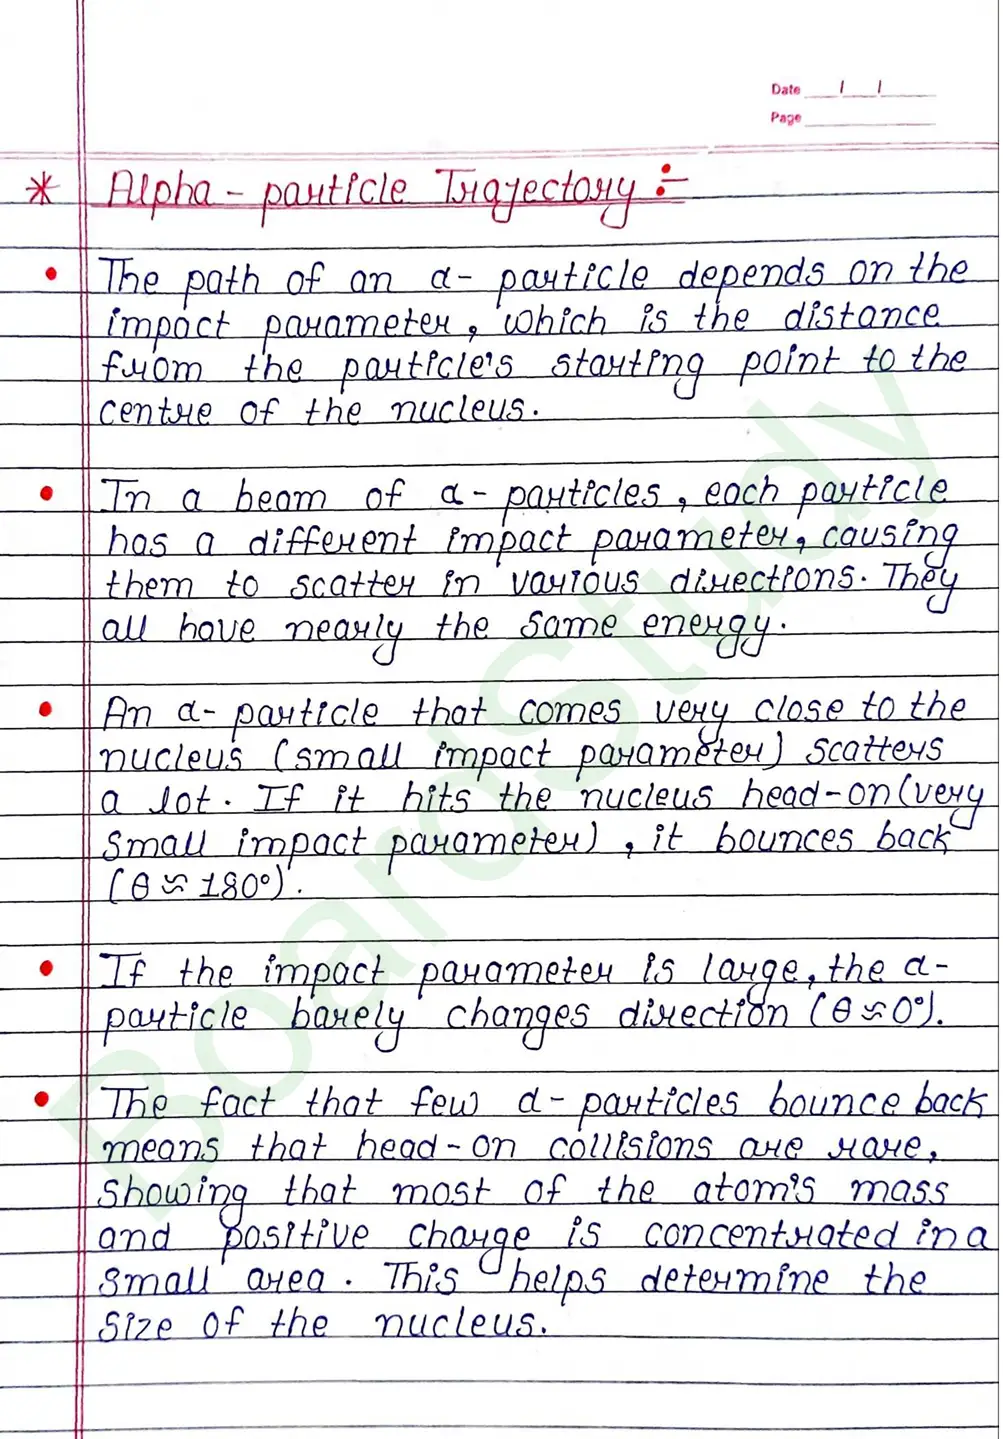 Date / /
Page
* Alpha - particle Trajectory :-
• The path of an α- particle depends on the
impact parameter, which is the distance
from the particle's starting point to the
centre of the nucleus.
• In a beam of α- particles, each particle
has a different impact parameter, causing
them to scatter in various directions. They
all have nearly the same energy.
• An α- particle that comes very close to the
nucleus (small impact parameter) scatters
a lot. If it hits the nucleus head-on (very
small impact parameter), it bounces back
(θ ≈ 180°).
• If the impact parameter is large, the α-
particle barely changes direction (θ ≈ 0°).
• The fact that few α- particles bounce back
means that head-on collisions are rare,
showing that most of the atom's mass
and positive charge is concentrated in a
small area. This helps determine the
size of the nucleus.
BoardStudy